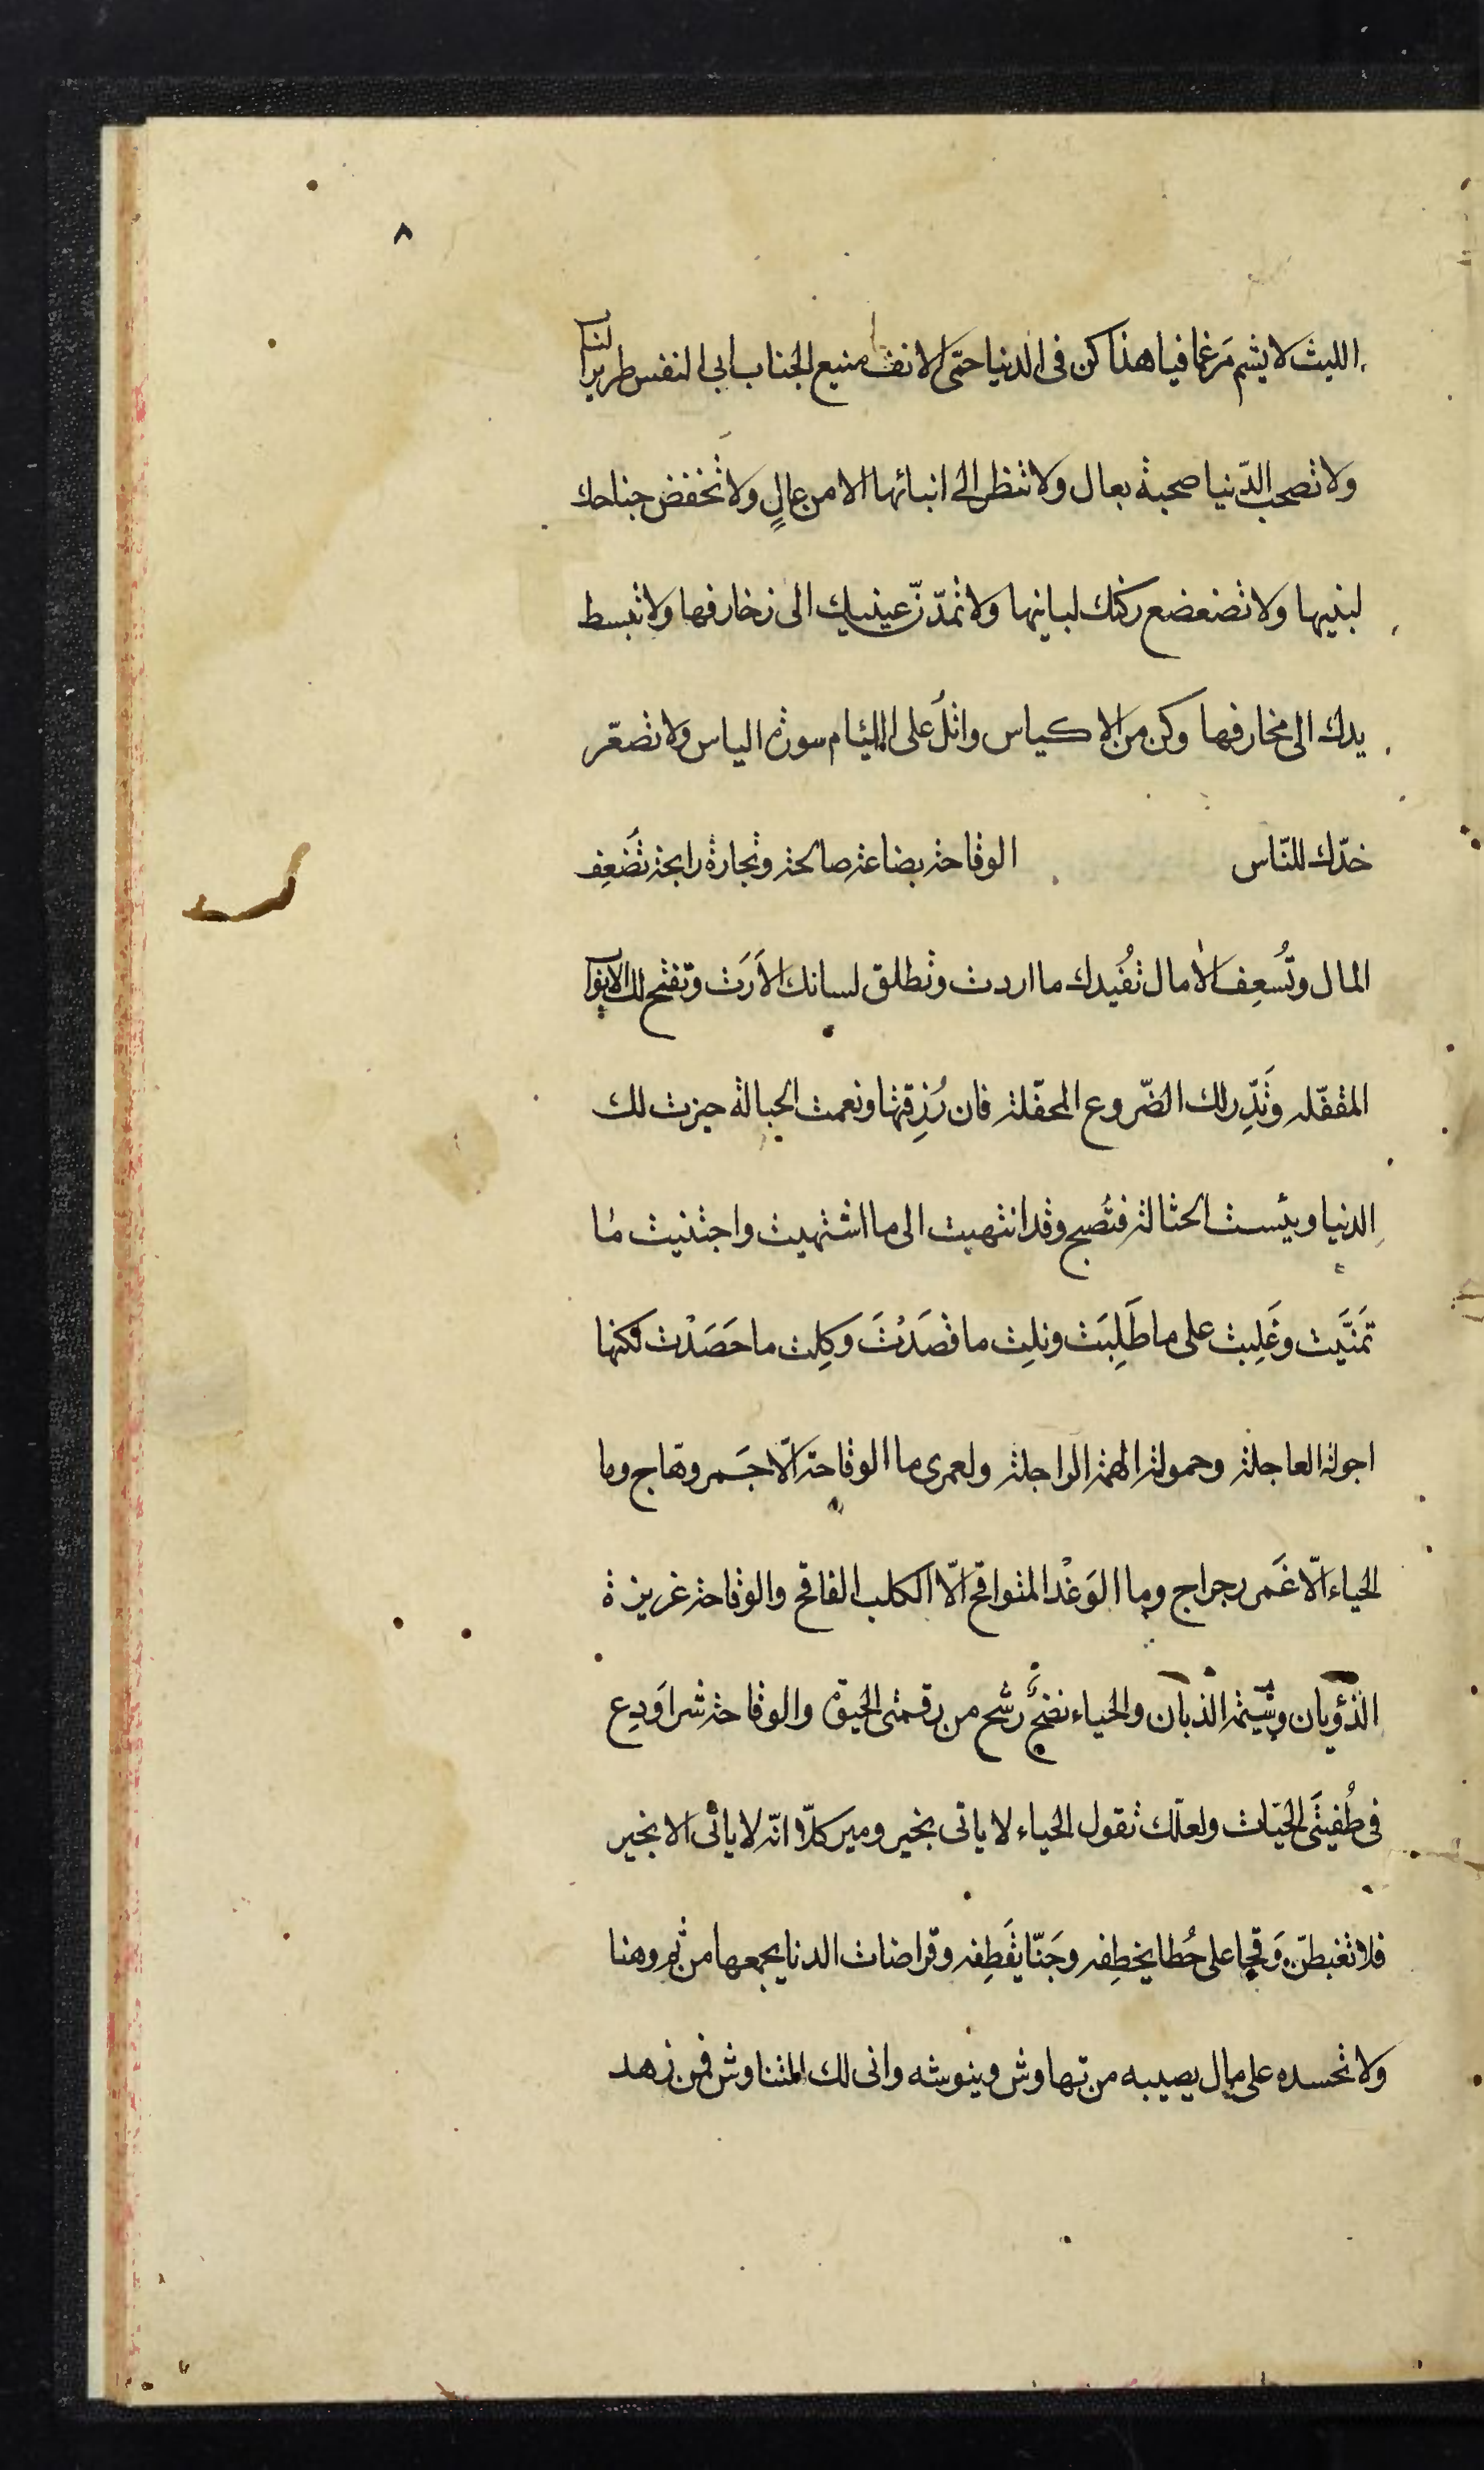 ٨
الليث لا يشم مَرغما فيا هذا كن فى الدنيا حتى الانف منيع الجناب ابى النفس طرير الناب
ولا تصحب الدّنيا صحبة بعال ولا تنظر الى ابنائها الا من عالٍ ولا تَخفض جناحك
لبنيها ولا تضعضع ركنك لبانيها ولا تمدّنّ عينيك الى زخارفها ولا تبسط
يدك الى مخارفها وكن من الاكياس واتلُ على اللئام سورة الياس ولا تصعّر
خدّك للنّاس الوقاحة بضاعة صالحة وتجارة رابحة تَضعِف
المال وتُسعِف الآمال تُفيدك ما اردت وتطلق لسانك الاَرَت وتفتح لك الابواب
المقفّلة وتَدِّر لك الضّروع المحفّلة فان رُزِقتها ونعمت الحبالة حيزت لك
الدنيا وبئست الحثالة فتُصبح وقد انتهيت الى ما اشتهيت واجتنيت ما
تمَنَّيت وغَلِبت على ما طَلِبَت ونلِت ما قصَدْتَ وكِلت ما حَصَدْت لكنها
اجولة العاجلة وحمولة الهمة الراجلة ولعمرى ما الوقاحة الّا جَمر وهّاج وما
الحياء الّا غَمر رجراج وما الوَغْد المتواقح الّا الكلب الفاقح والوقاحة غريزة
الذؤبان وشيمة الذبان والحياء نضحٌ رشح من رقمتى الحيوة والوقاحة شر اودِع
فى طُفيتَى الحيّات ولعلّك تقول الحياء لا ياتى بخير ومير كلّا انّه لا يأتى الا بخير
فلا تغبطنّ وَقحا على حُطا يخطِفه وجَنّا يقَطِفه وقراضات الدنا يجمعها من ثم وهنا
ولا تحسده على مال يصيبه من تهاوش وينوشه وانى لك المتناوش فمن زهد